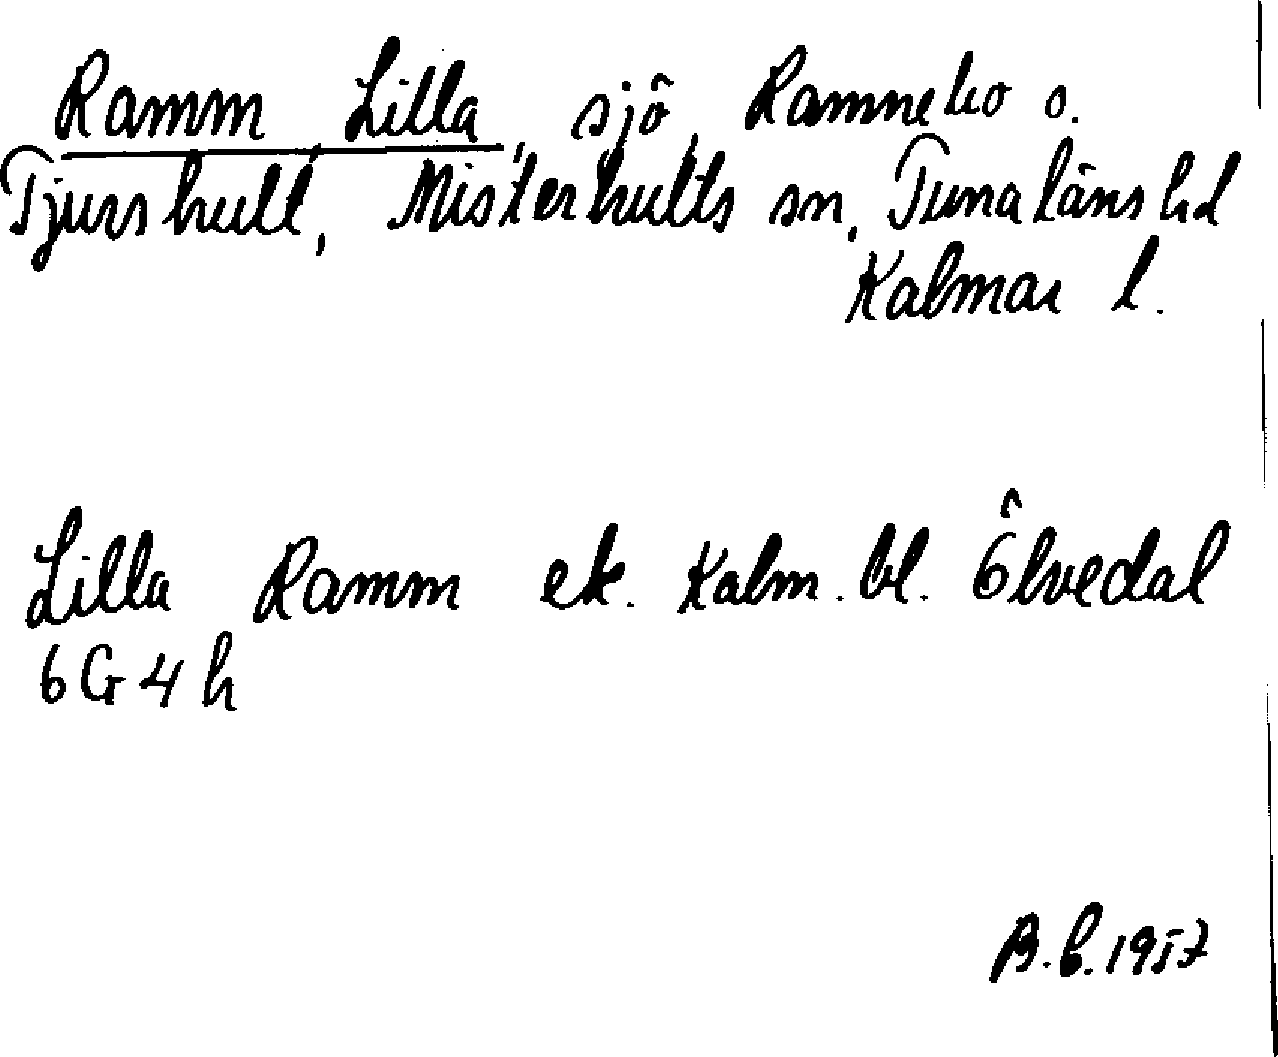 Ramm, Lilla, sjö, Ramnebo o.
Tjurshult, Misterhults sn, Tunaläns hd
Kalmar l.
Lilla Ramm ek. Kalm. bl. Ölvedal
6G4h
B.L. 1957